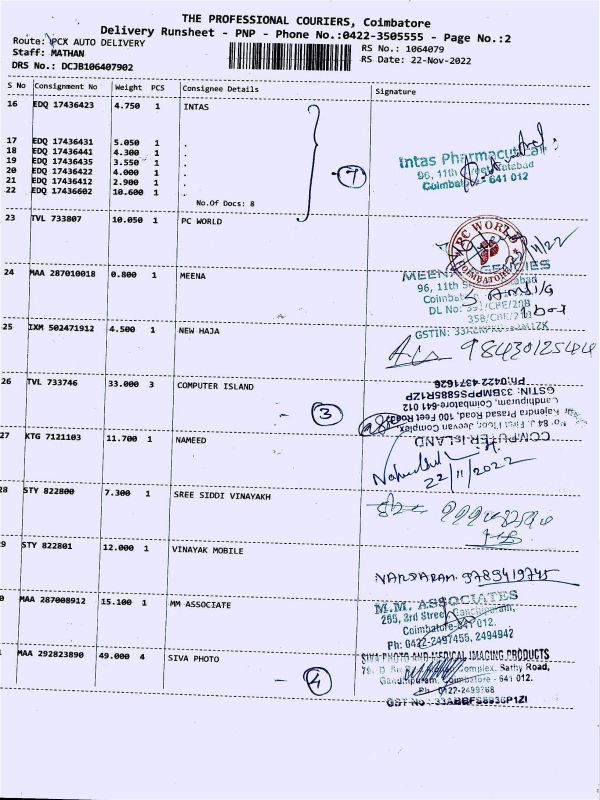 THE PROFESSIONAL COURIERS, Coimbatore
Delivery Runsheet - PNP - Phone No.:0422-3505555 - Page No.:2
Route: PCX AUTO DELIVERY
Staff: MATHAN
DRS No.: DCJB106407902
RS No.: 1064079
RS Date: 22-Nov-2022
S No Consignment No Weight PCS Consignee Details Signature
16 EDQ 17436423 4.750 1 INTAS
17 EDQ 17436431 5.050 1 .
18 EDQ 17436441 4.300 1 .
19 EDQ 17436435 3.550 1 .
20 EDQ 17436422 4.000 1 .
21 EDQ 17436412 2.900 1 .
22 EDQ 17436602 10.600 1 .
No.Of Docs: 8
- 7
Intas Pharmaceutical
96, 11th Street
Coimbatore - 641 012
23 TVL 733807 10.050 1 PC WORLD
PC WORLD
COIMBATORE
24 MAA 287010018 0.800 1 MEENA
MEENA AGENCIES
96, 11th
DL No:
358/CBE/21B
1 box
GSTIN:
25 IXM 502471912 4.500 1 NEW HAJA
26 TVL 733746 33.000 3 COMPUTER ISLAND
- 3
COMPUTER ISLAND
No 84 J. First Floor, Jeevan Complex,
Rajendra Prasad Road, 100 Feet Road
Gandhipuram, Coimbatore-641 012
GSTIN: 33BMPPS5885R1ZP
Ph:0422 4371626
27 KTG 7121103 11.700 1 NAMEED
22/11/2022
28 STY 822800 7.300 1 SREE SIDDI VINAYAKH
9 STY 822801 12.000 1 VINAYAK MOBILE
9789419745
0 MAA 287008912 15.100 1 MM ASSOCIATE
M.M. ASSOCIATES
255, 3rd Street, Gandhipuram,
Coimbatore-641 012.
Ph: 0422-2497455, 2494942
MAA 292823890 49.000 4 SIVA PHOTO
- 4
SIVA PHOTO AND MEDICAL IMAGING PRODUCTS
Complex, Sathy Road,
Gandhipuram, Coimbatore - 641 012.